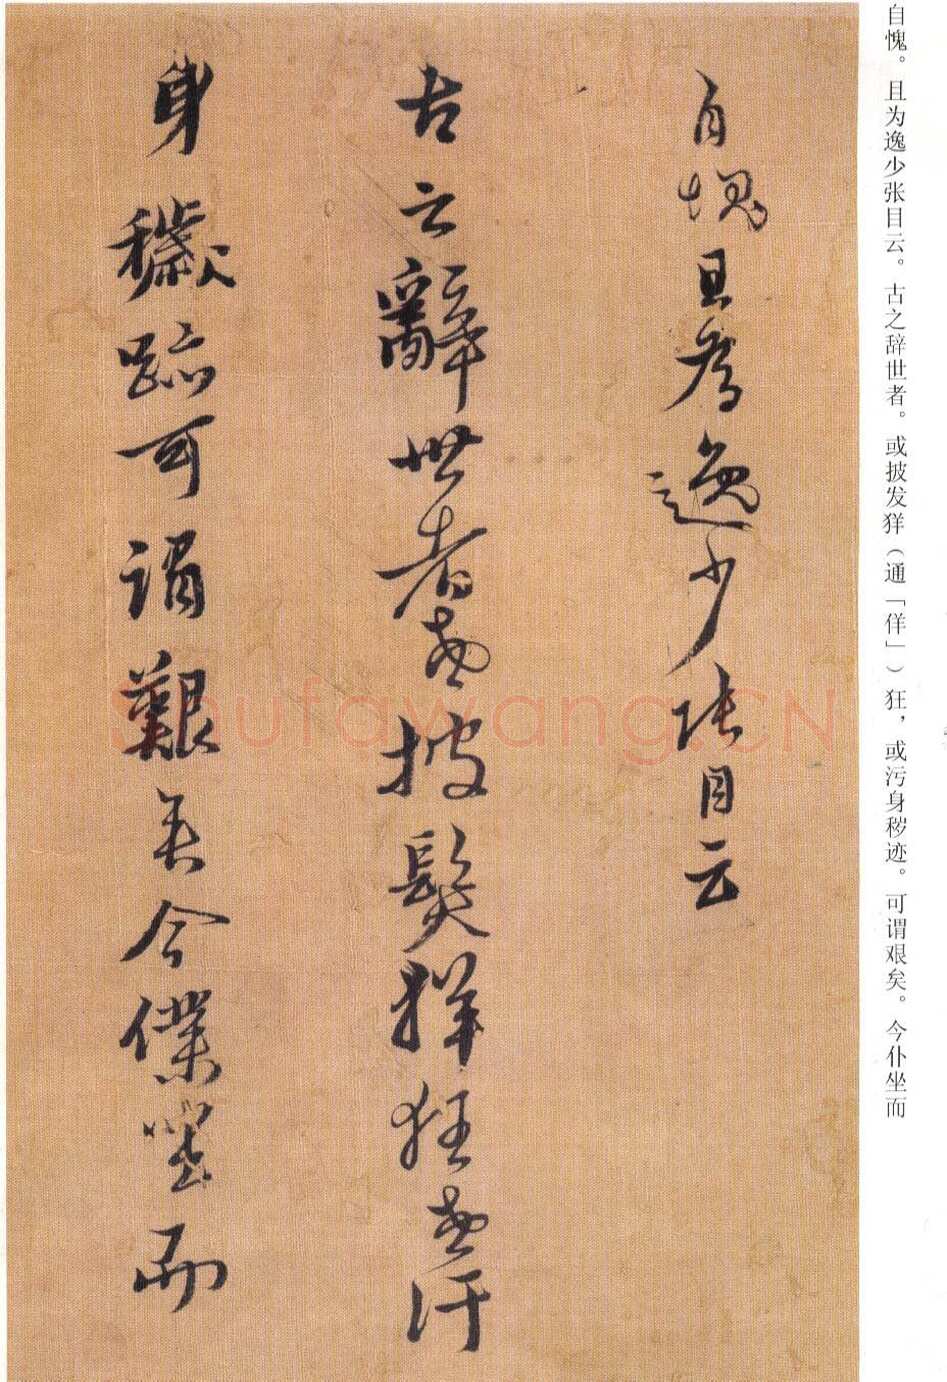 自愧。且为逸少张目云。古之辞世者。或披发徉（通「佯」）狂，或污身秽迹。可谓艰矣。今仆坐而
自愧且為逸少張目云
古之辭世者或披髮徉狂或汙
身穢跡可謂艱矣今僕坐而
Shufawang.CN